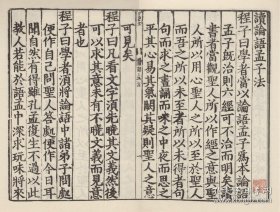 讀論語孟子法
程子曰學者當以論語孟子為本論語
孟子既治則六經可不治而明矣讀
書者當觀聖人所以作經之意與聖
人所以用心聖人之所以至於聖人
而吾之所以未至者所以未得者句
句而求之晝誦而味之中夜而思之
平其心易其氣闕其疑則聖人之意
可見矣
程子曰凡看文字須先曉其文義然後
可以求其意未有不曉文義而見意
者也
程子曰學者須將論語中諸弟子問處
便作自己問聖人答處便作今日耳
聞自然有得雖孔孟復生不過以此
教人若能於語孟中深求玩味將來